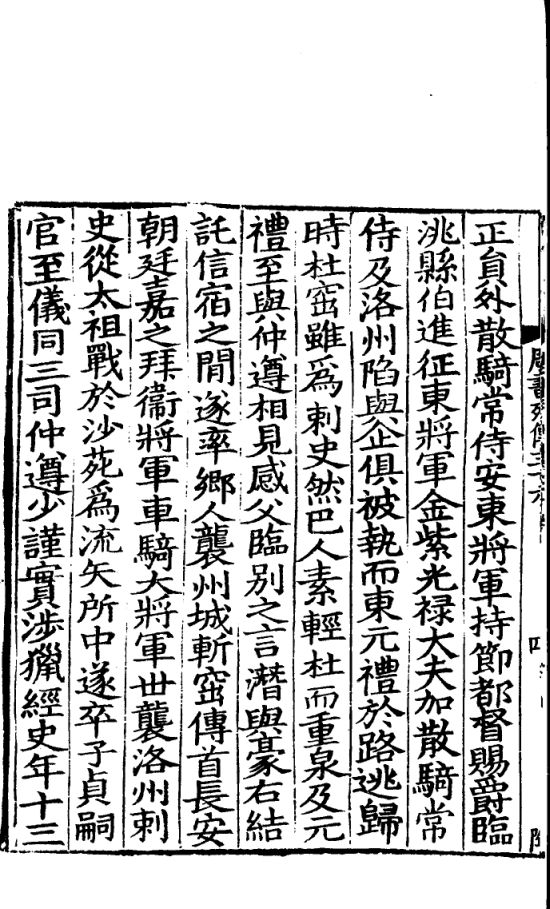 正員外散騎常侍安東將軍持節都督賜爵臨
洮縣伯進征東將軍金紫光禄大夫加散騎常
侍及洛州陷與企俱被執而東元禮於路逃歸
時杜窋雖爲刺史然巴人素輕杜而重泉及元
禮至與仲遵相見感父臨别之言潛與豪右結
託信宿之間遂率鄉人襲州城斬窋傳首長安
朝廷嘉之拜衞將軍車騎大將軍世襲洛州刺
史從太祖戰於沙苑爲流矢所中遂卒子貞嗣
官至儀同三司仲遵少謹實涉獵經史年十三